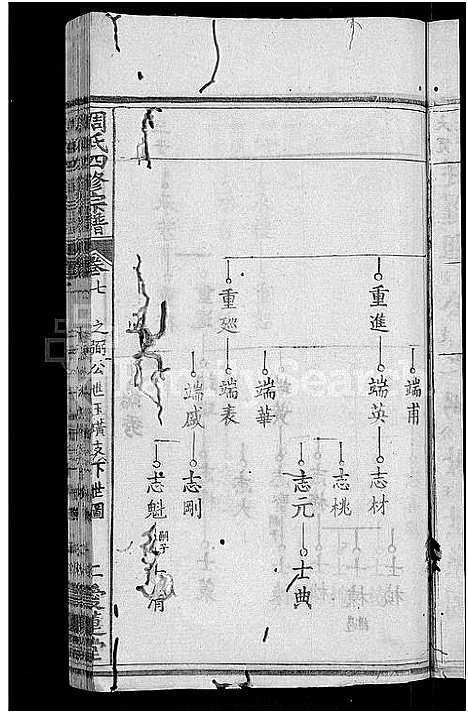 周氏四修宗譜
卷七
之弼公世玉璜支下世圖
愛蓮堂
重進
重廵
端甫
端英
端華
端表
端威
志材
志桃
志元
志剛
志魁
嗣子
士典